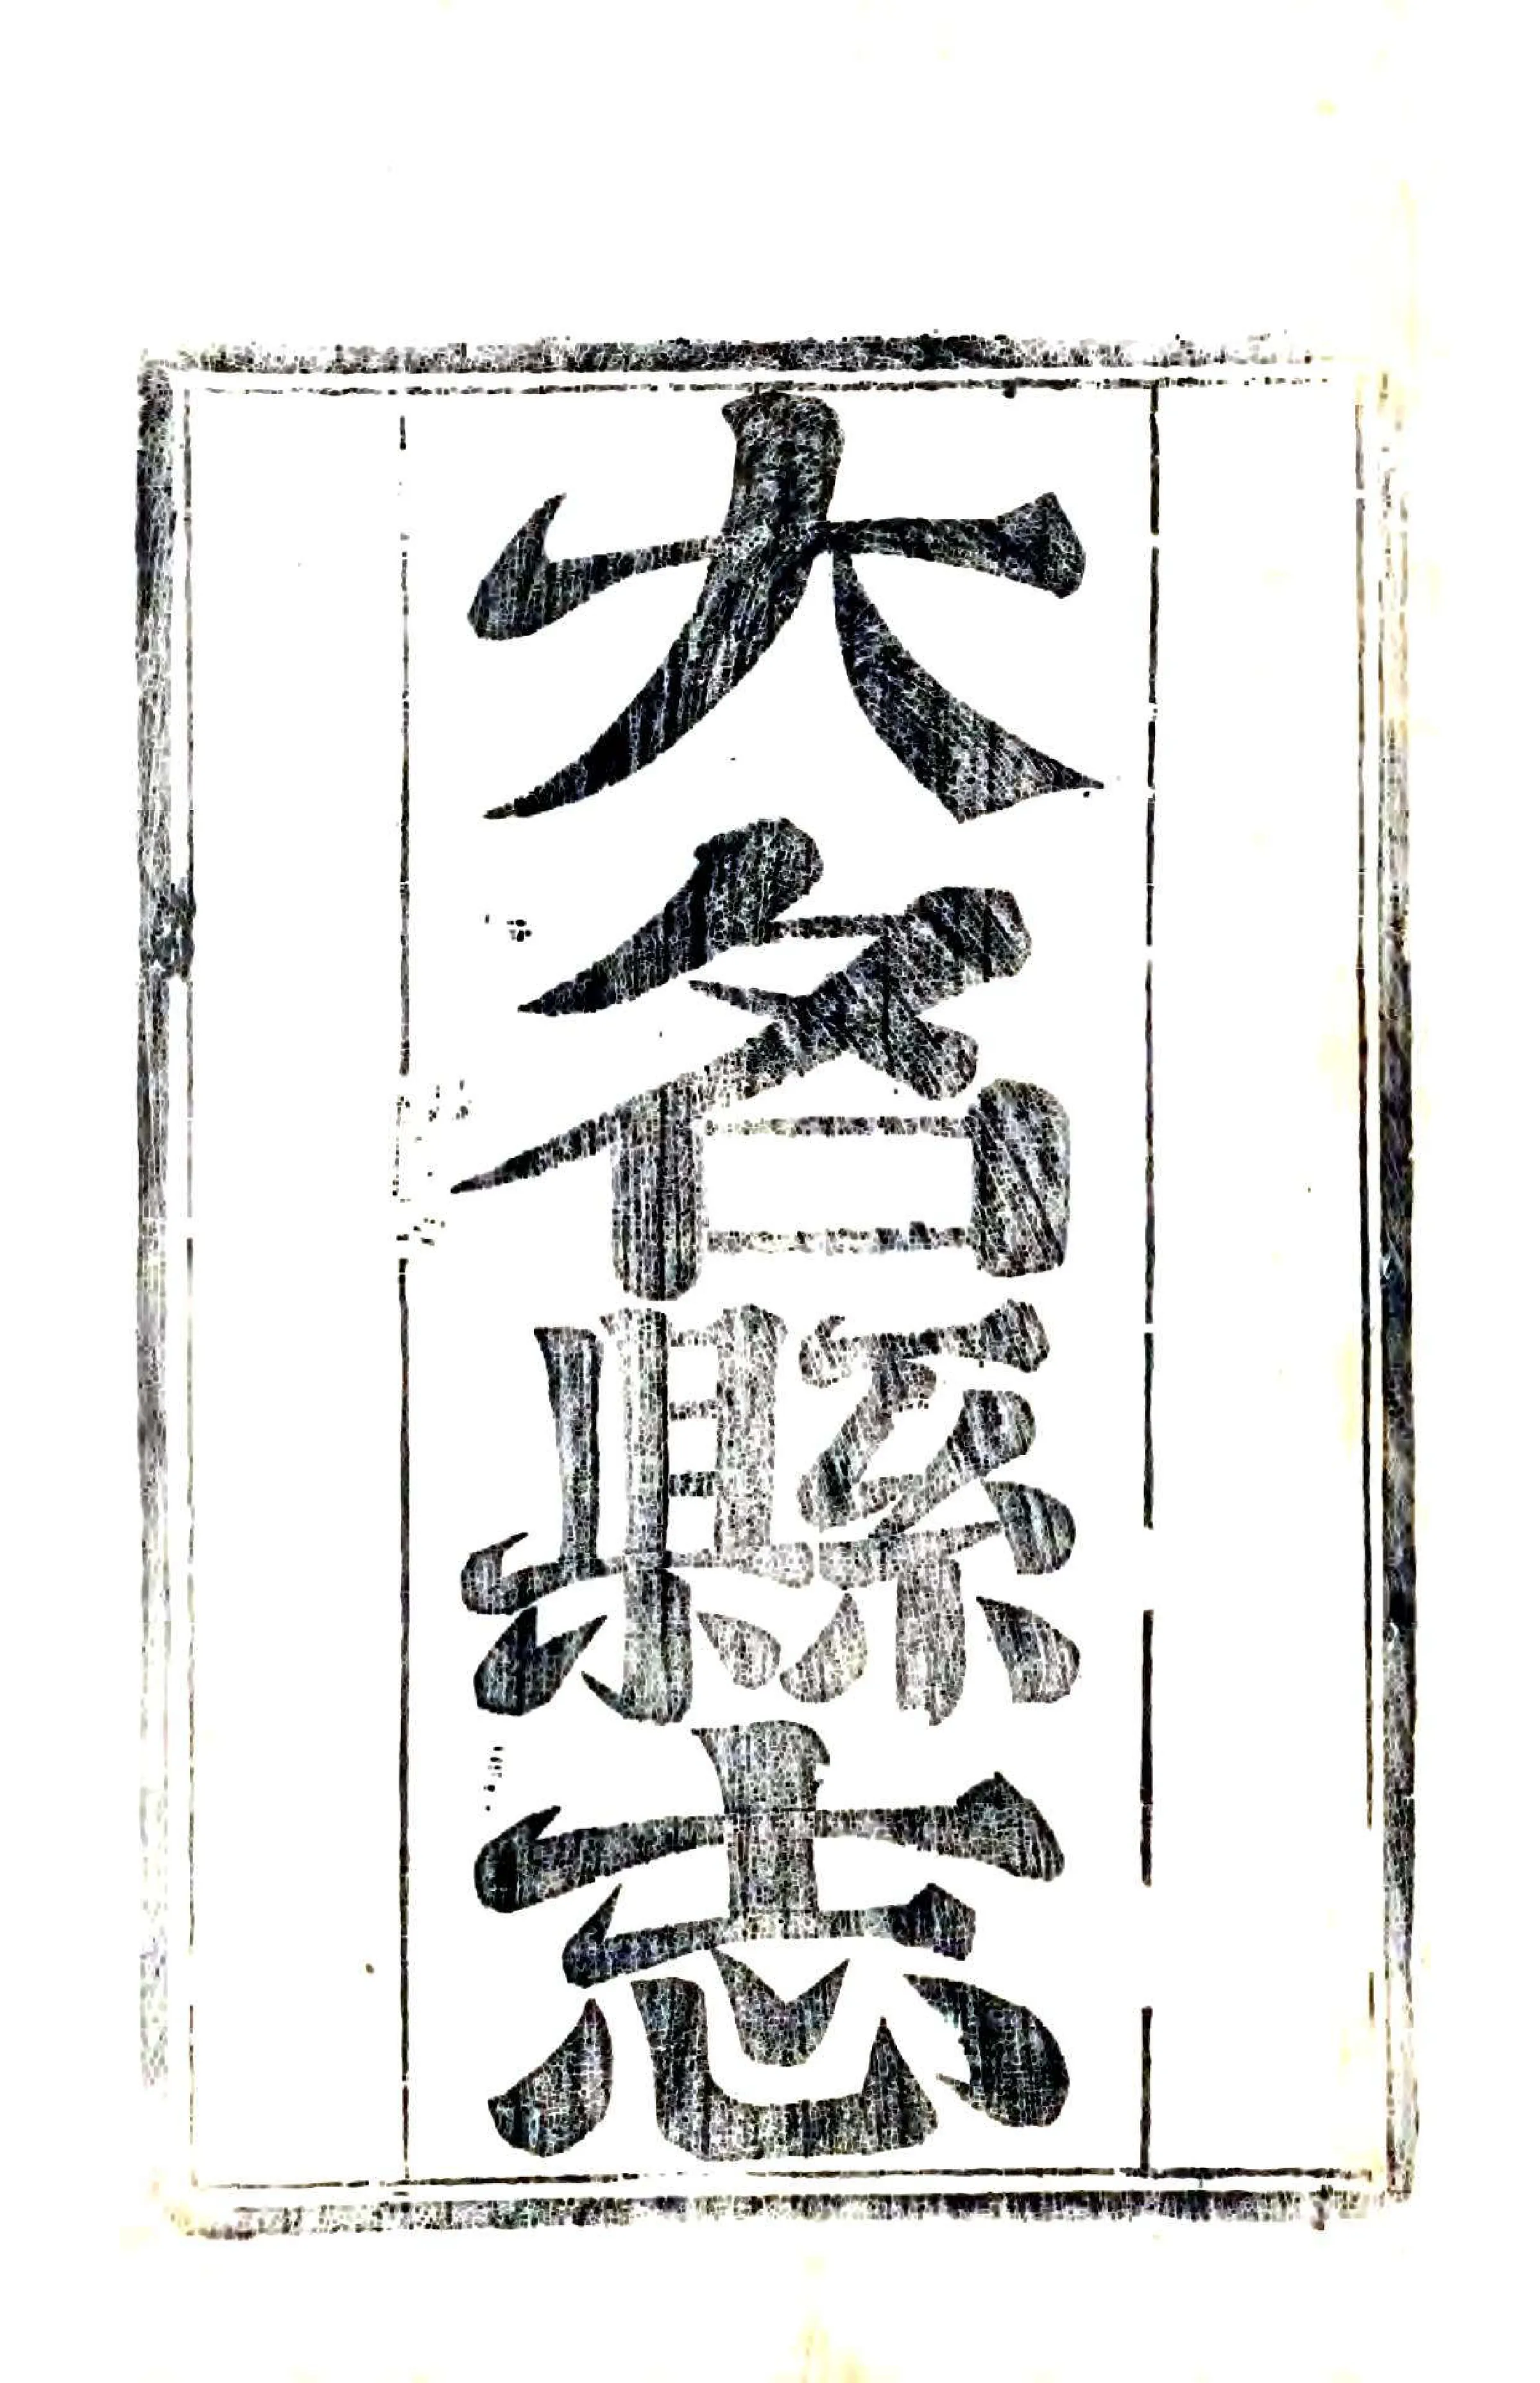 大名縣志